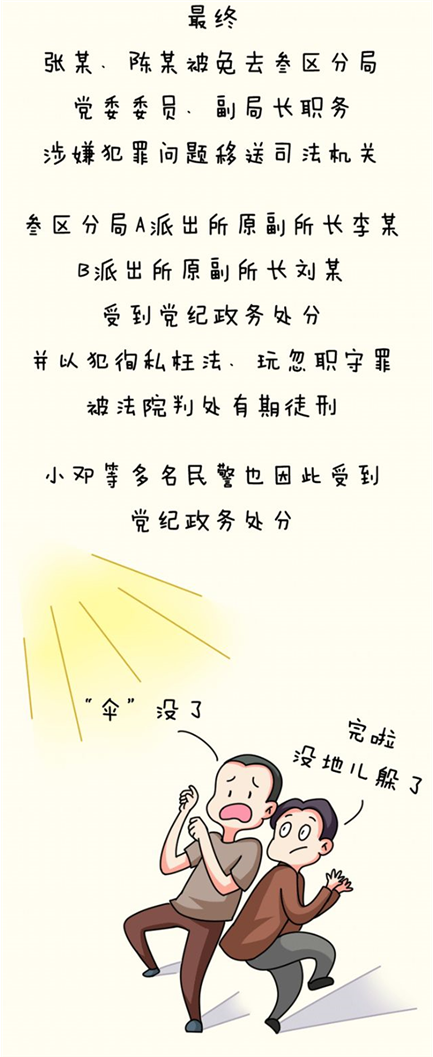 最终
张某、陈某被免去叁区分局
党委委员、副局长职务
涉嫌犯罪问题移送司法机关
叁区分局A派出所原副所长李某
B派出所原副所长刘某
受到党纪政务处分
并以犯徇私枉法、玩忽职守罪
被法院判处有期徒刑
小邓等多名民警也因此受到
党纪政务处分
“伞”没了
完啦
没地儿躲了